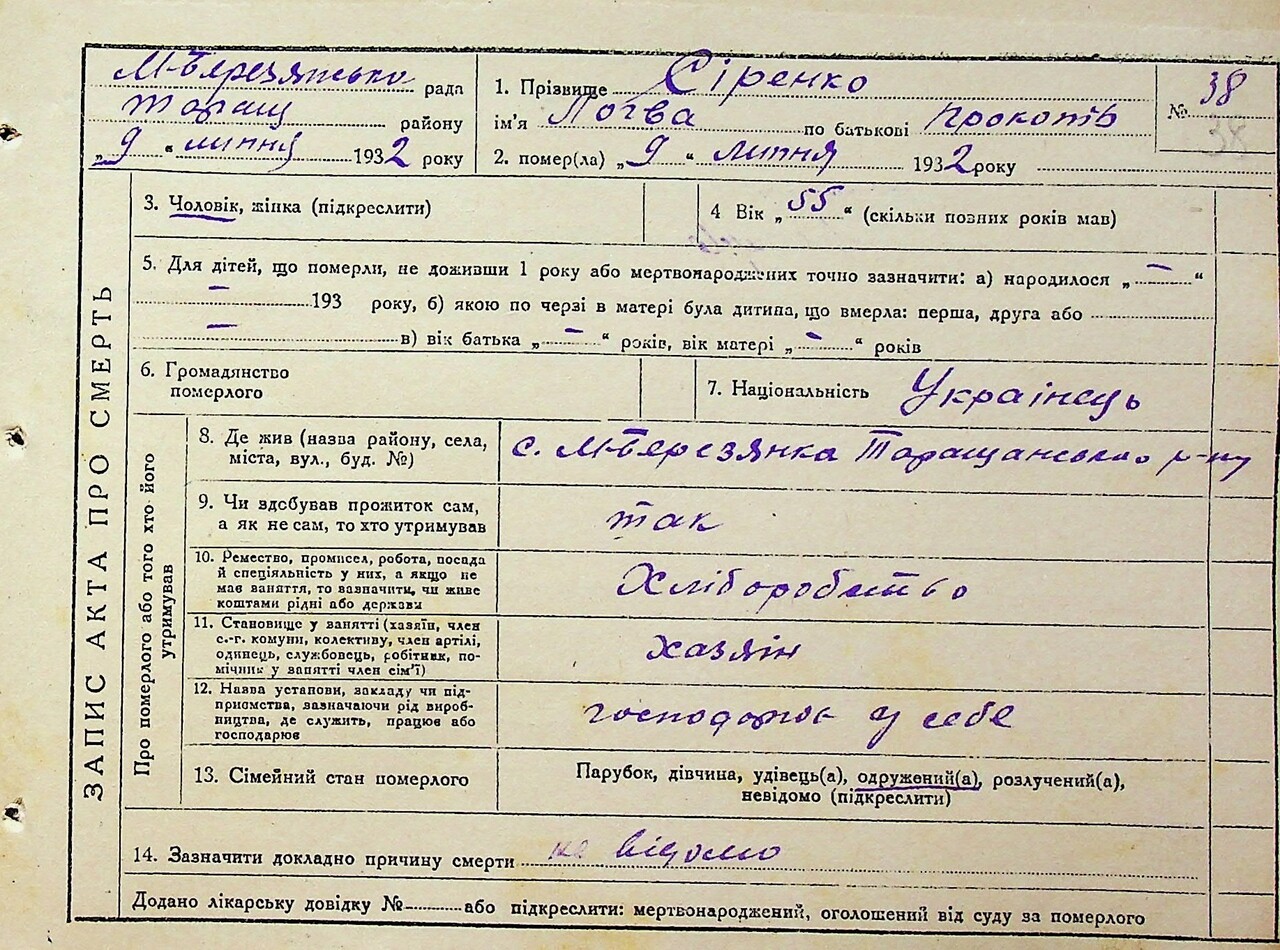 М-Березянська рада
Таращ району
„ 9 “ липня 1932 року
1. Прізвище Сіренко
ім'я Логва по батькові Прокопів
2. помер(ла) „ 9 “ липня 1932 року
№ 38
38
ЗАПИС АКТА ПРО СМЕРТЬ
3. Чоловік, жінка (підкреслити)
4 Вік „ 55 “ (скільки повних років мав)
5. Для дітей, що померли, не доживши 1 року або мертвонароджених точно зазначити: а) народилося „ — “
— 193 року, б) якою по черзі в матері була дитина, що вмерла: перша, друга або
— в) вік батька „ — “ років, вік матері „ — “ років
6. Громадянство
померлого
7. Національність Українець
Про померлого або того хто його
утримував
8. Де жив (назва району, села,
міста, вул., буд. №)
с. М-Березянка Таращанського р-ну
9. Чи здобував прожиток сам,
а як не сам, то хто утримував
так
10. Ремество, промисел, робота, посада
й спеціяльність у них, а якщо не
мав заняття, то зазначити, чи живе
коштами рідні або держави
Хліборобство
11. Становище у занятті (хазяїн, член
с.-г. комуни, колективу, член артілі,
одинець, службовець, робітник, по-
мічник у занятті член сім'ї)
хазяін
12. Назва установи, закладу чи під-
приємства, зазначаючи рід вироб-
ництва, де служить, працює або
господарює
у себе
13. Сімейний стан померлого
Парубок, дівчина, удівець(а), одружений(а), розлучений(а),
невідомо (підкреслити)
14. Зазначити докладно причину смерти не відомо
Додано лікарську довідку № або підкреслити: мертвонароджений, оголошений від суду за померлого